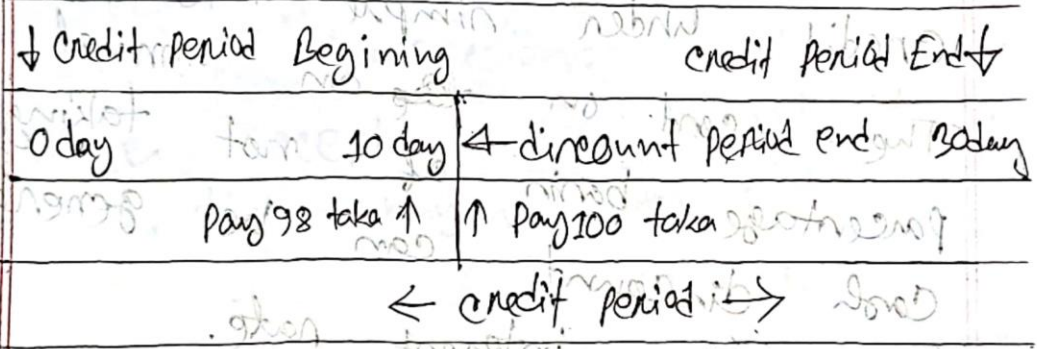 ↓ Credit Period Begining credit Period End↓
0 day 10 day ← discount period end 30day
pay 98 taka ↑ ↑ pay 100 taka
← credit period →